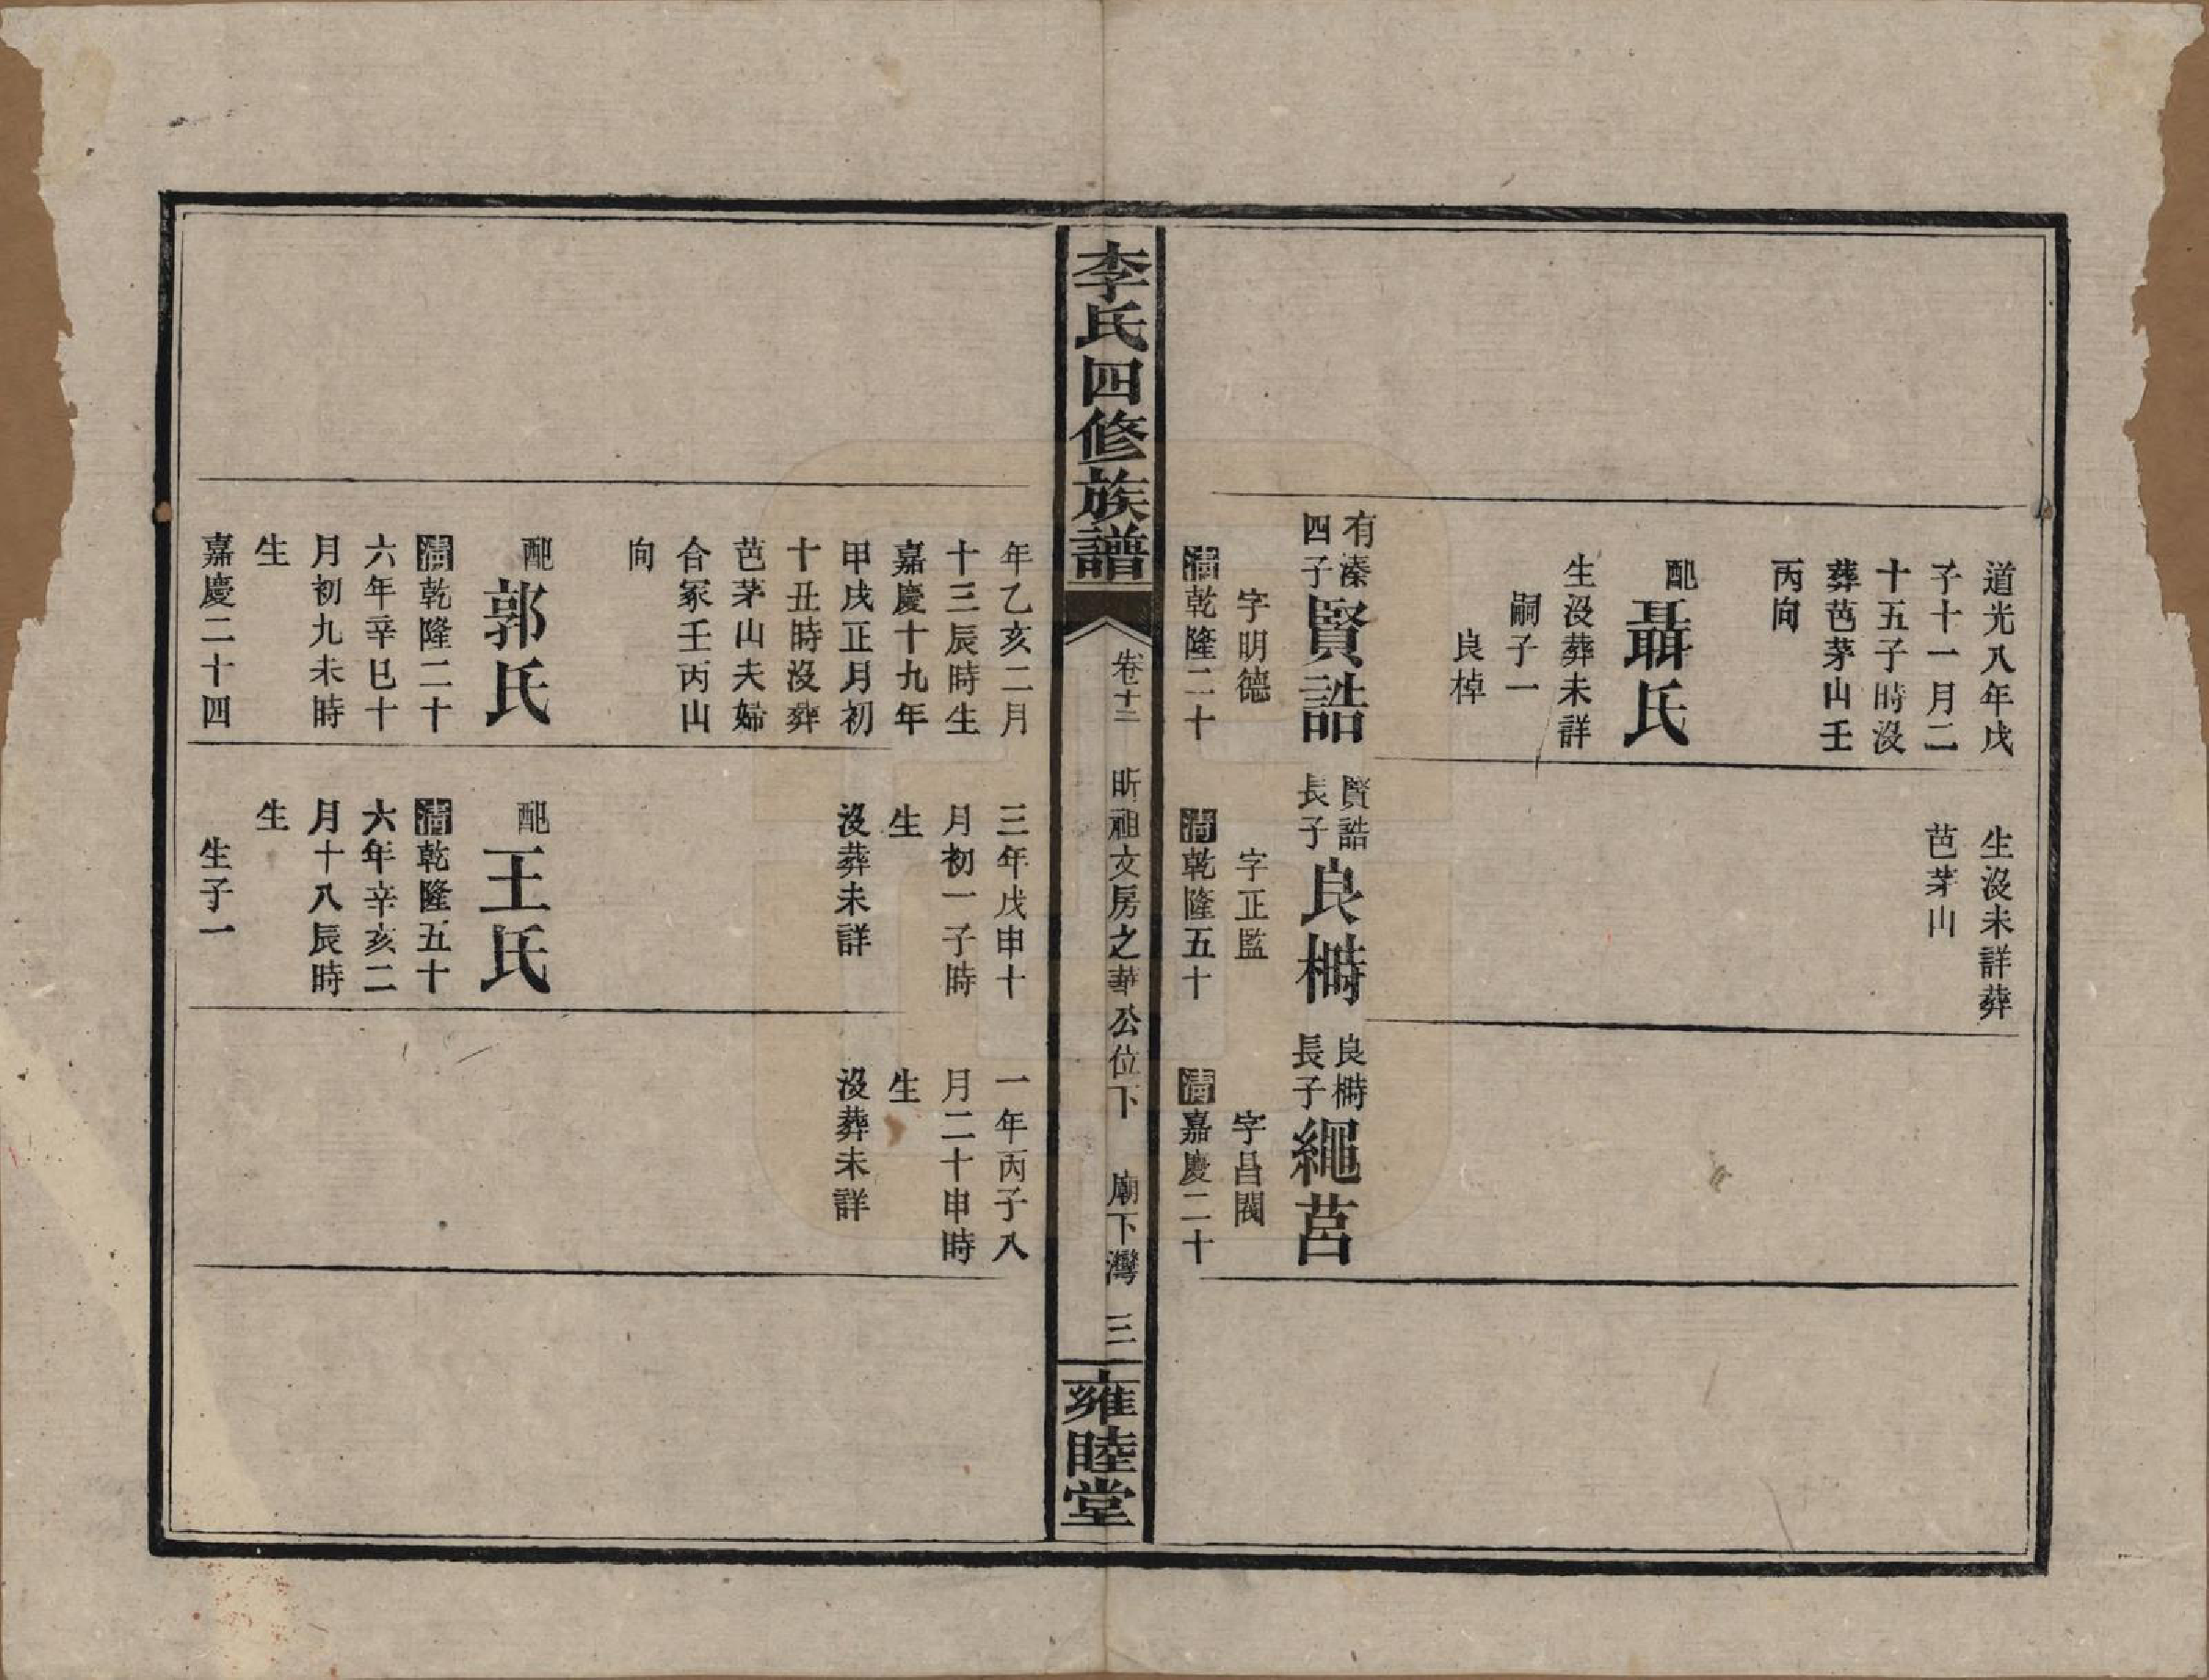 道光八年戊
子十一月二
十五子時沒
葬芭茅山壬
丙向
配聶氏
生沒葬未詳
嗣子一
良棹
生沒未詳葬
芭茅山
有溱
四子
賢誥
字明德
清乾隆二十
賢誥
長子
良榯
字正監
清乾隆五十
良榯
長子
繩莒
字昌閥
清嘉慶二十
李氏四修族譜
卷十三
昕祖文房之華公位下
廟下灣
三
雍睦堂
年乙亥二月
十三辰時生
嘉慶十九年
甲戌正月初
十丑時沒葬
芭茅山夫婦
合冢壬丙山
向
配郭氏
清乾隆二十
六年辛巳十
月初九未時
生
嘉慶二十四
三年戊申十
月初一子時
生
沒葬未詳
配王氏
清乾隆五十
六年辛亥二
月十八辰時
生
生子一
一年丙子八
月二十申時
生
沒葬未詳